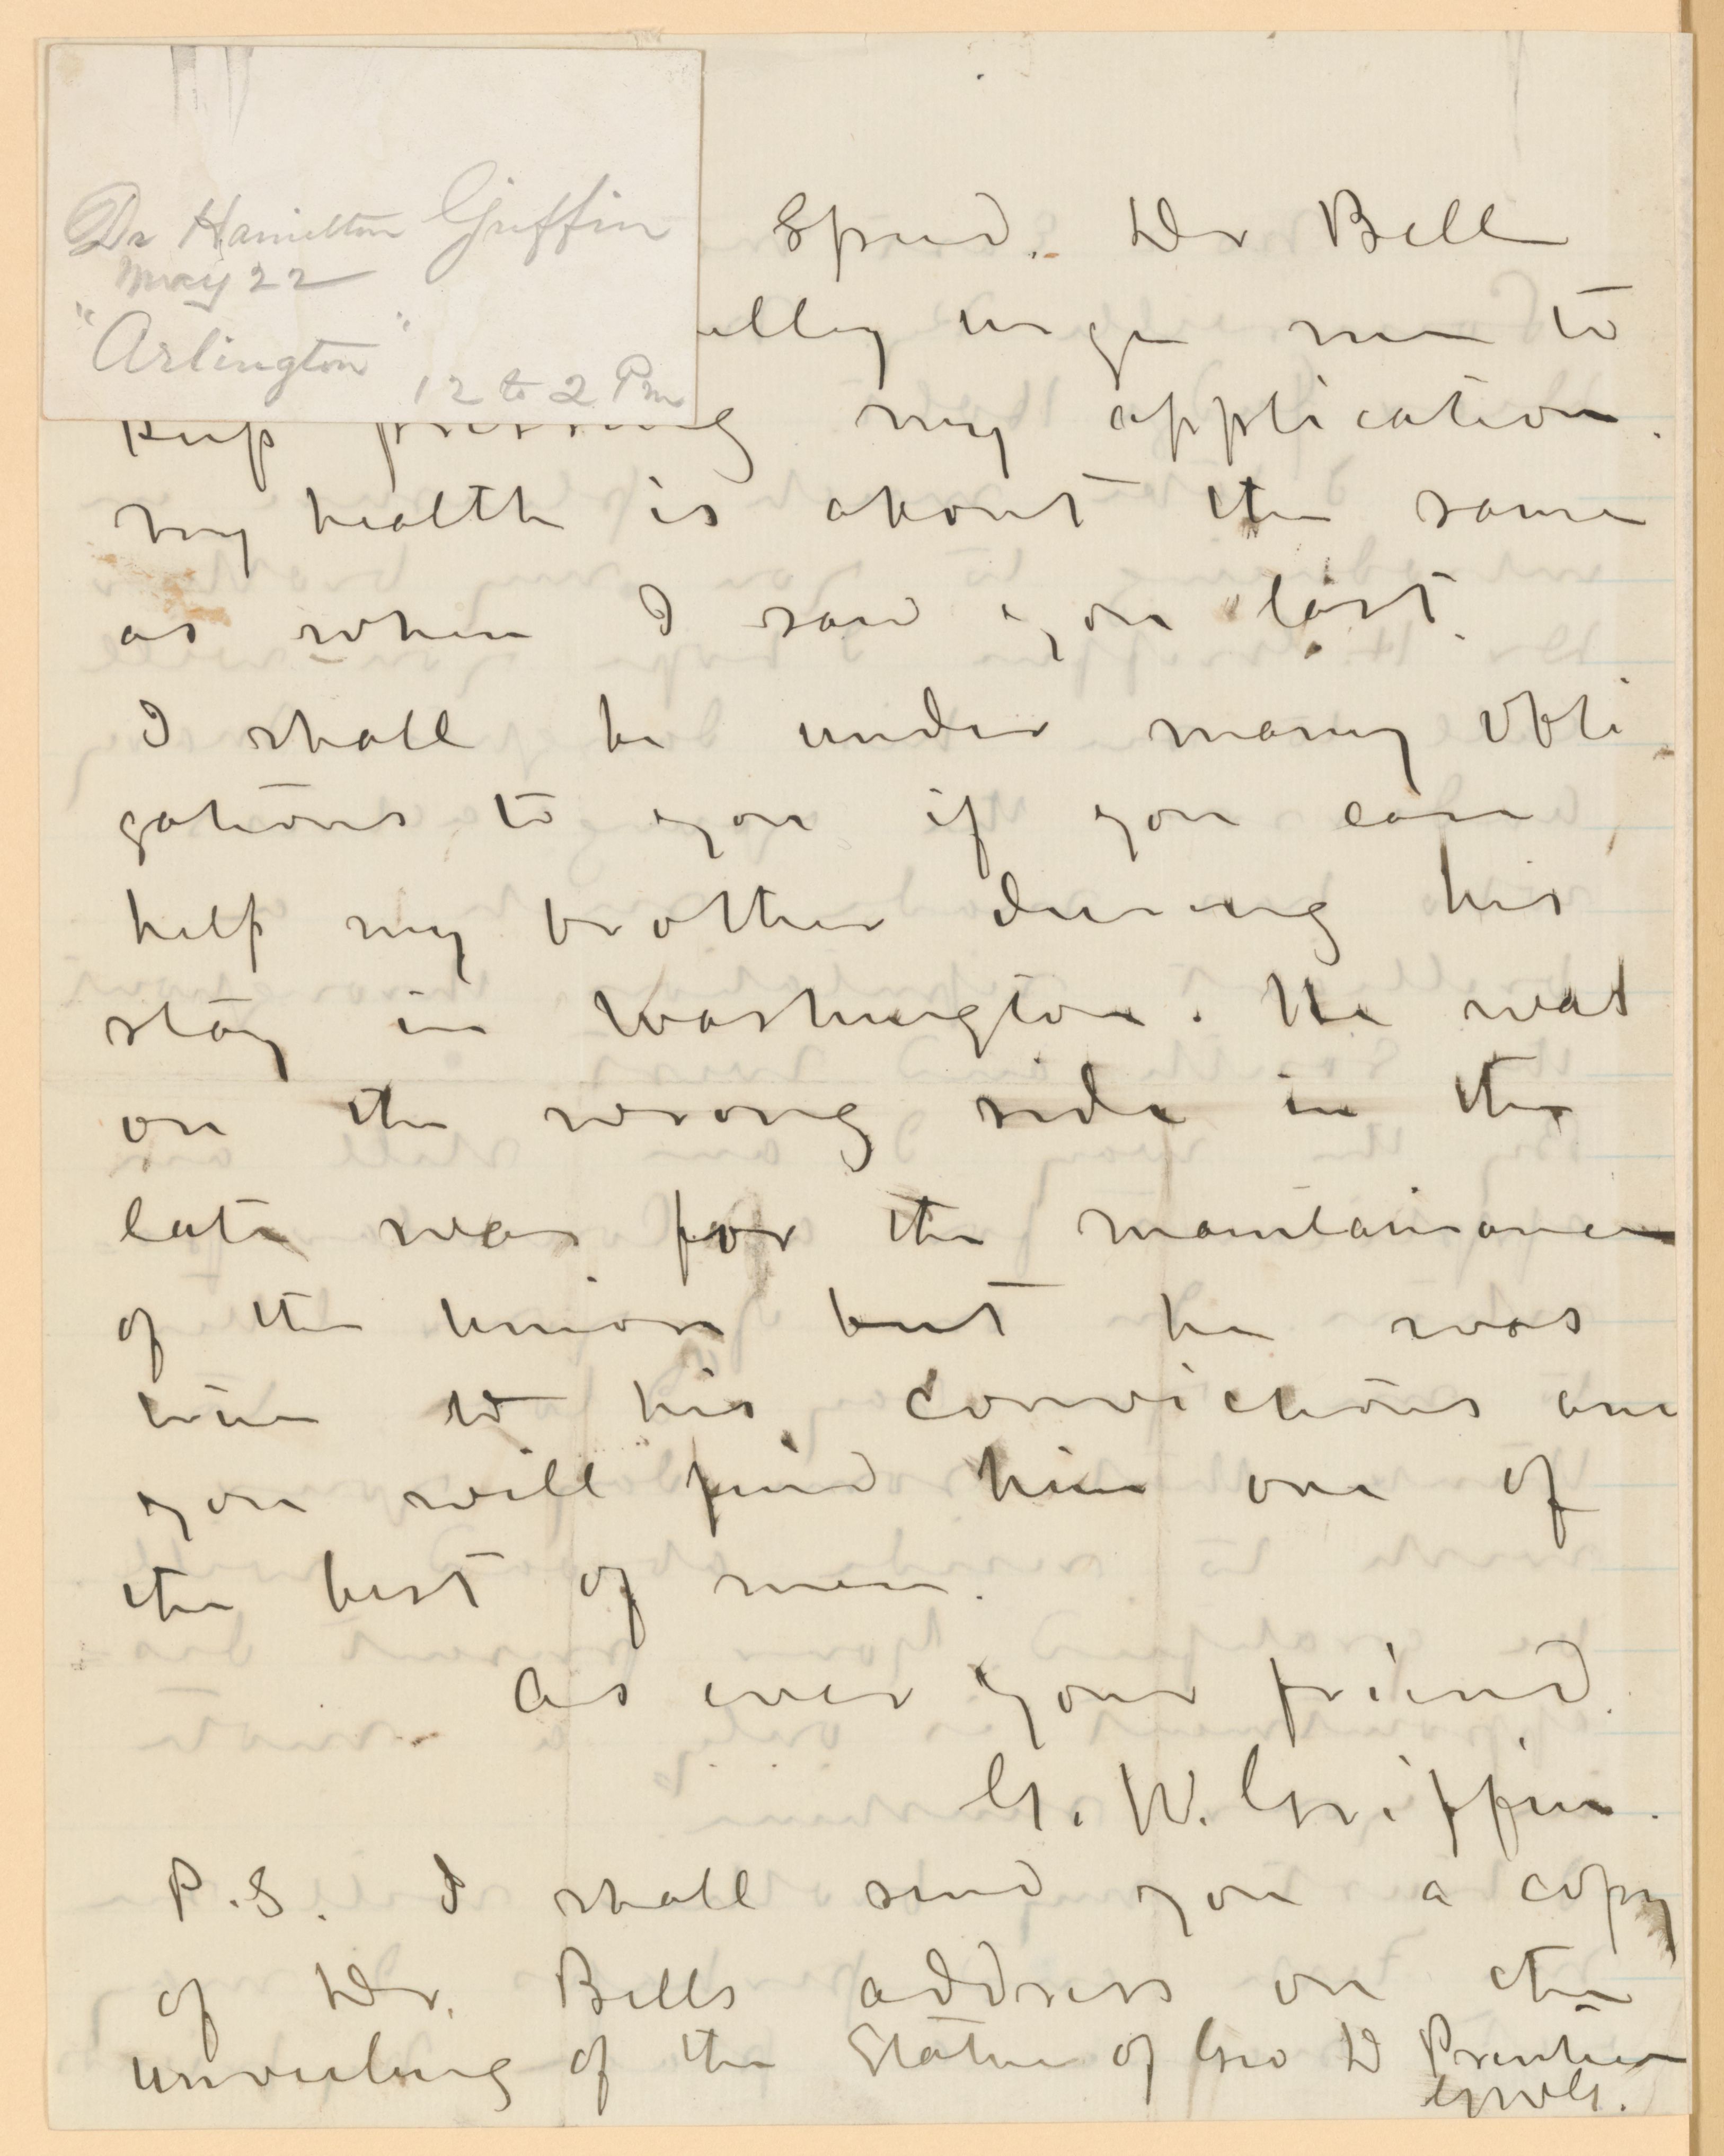 Dr Hamilton Griffin
May 22
"Arlington"
12 to 2 Pm
Speed. Dr Bell
ully urges me to
keep pressing my application.
my health is about the same
as when I saw you last.
I shall be under many obli
gations to you if you can
help my brother during his
stay in Washington. He was
on the wrong side in the
late war for the maintainance
of the Union but he was
true to his convictions and
you will find him one of
the best of men.
As ever your friend.
G. W. Griffin.
P.S. I shall send you a copy
of Dr. Bells address on the
unveiling of the Statue of Geo D Prentice
GWG.